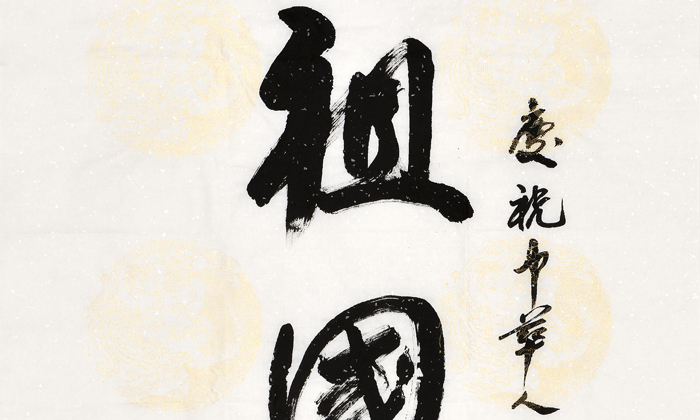 慶祝中華人
祖國